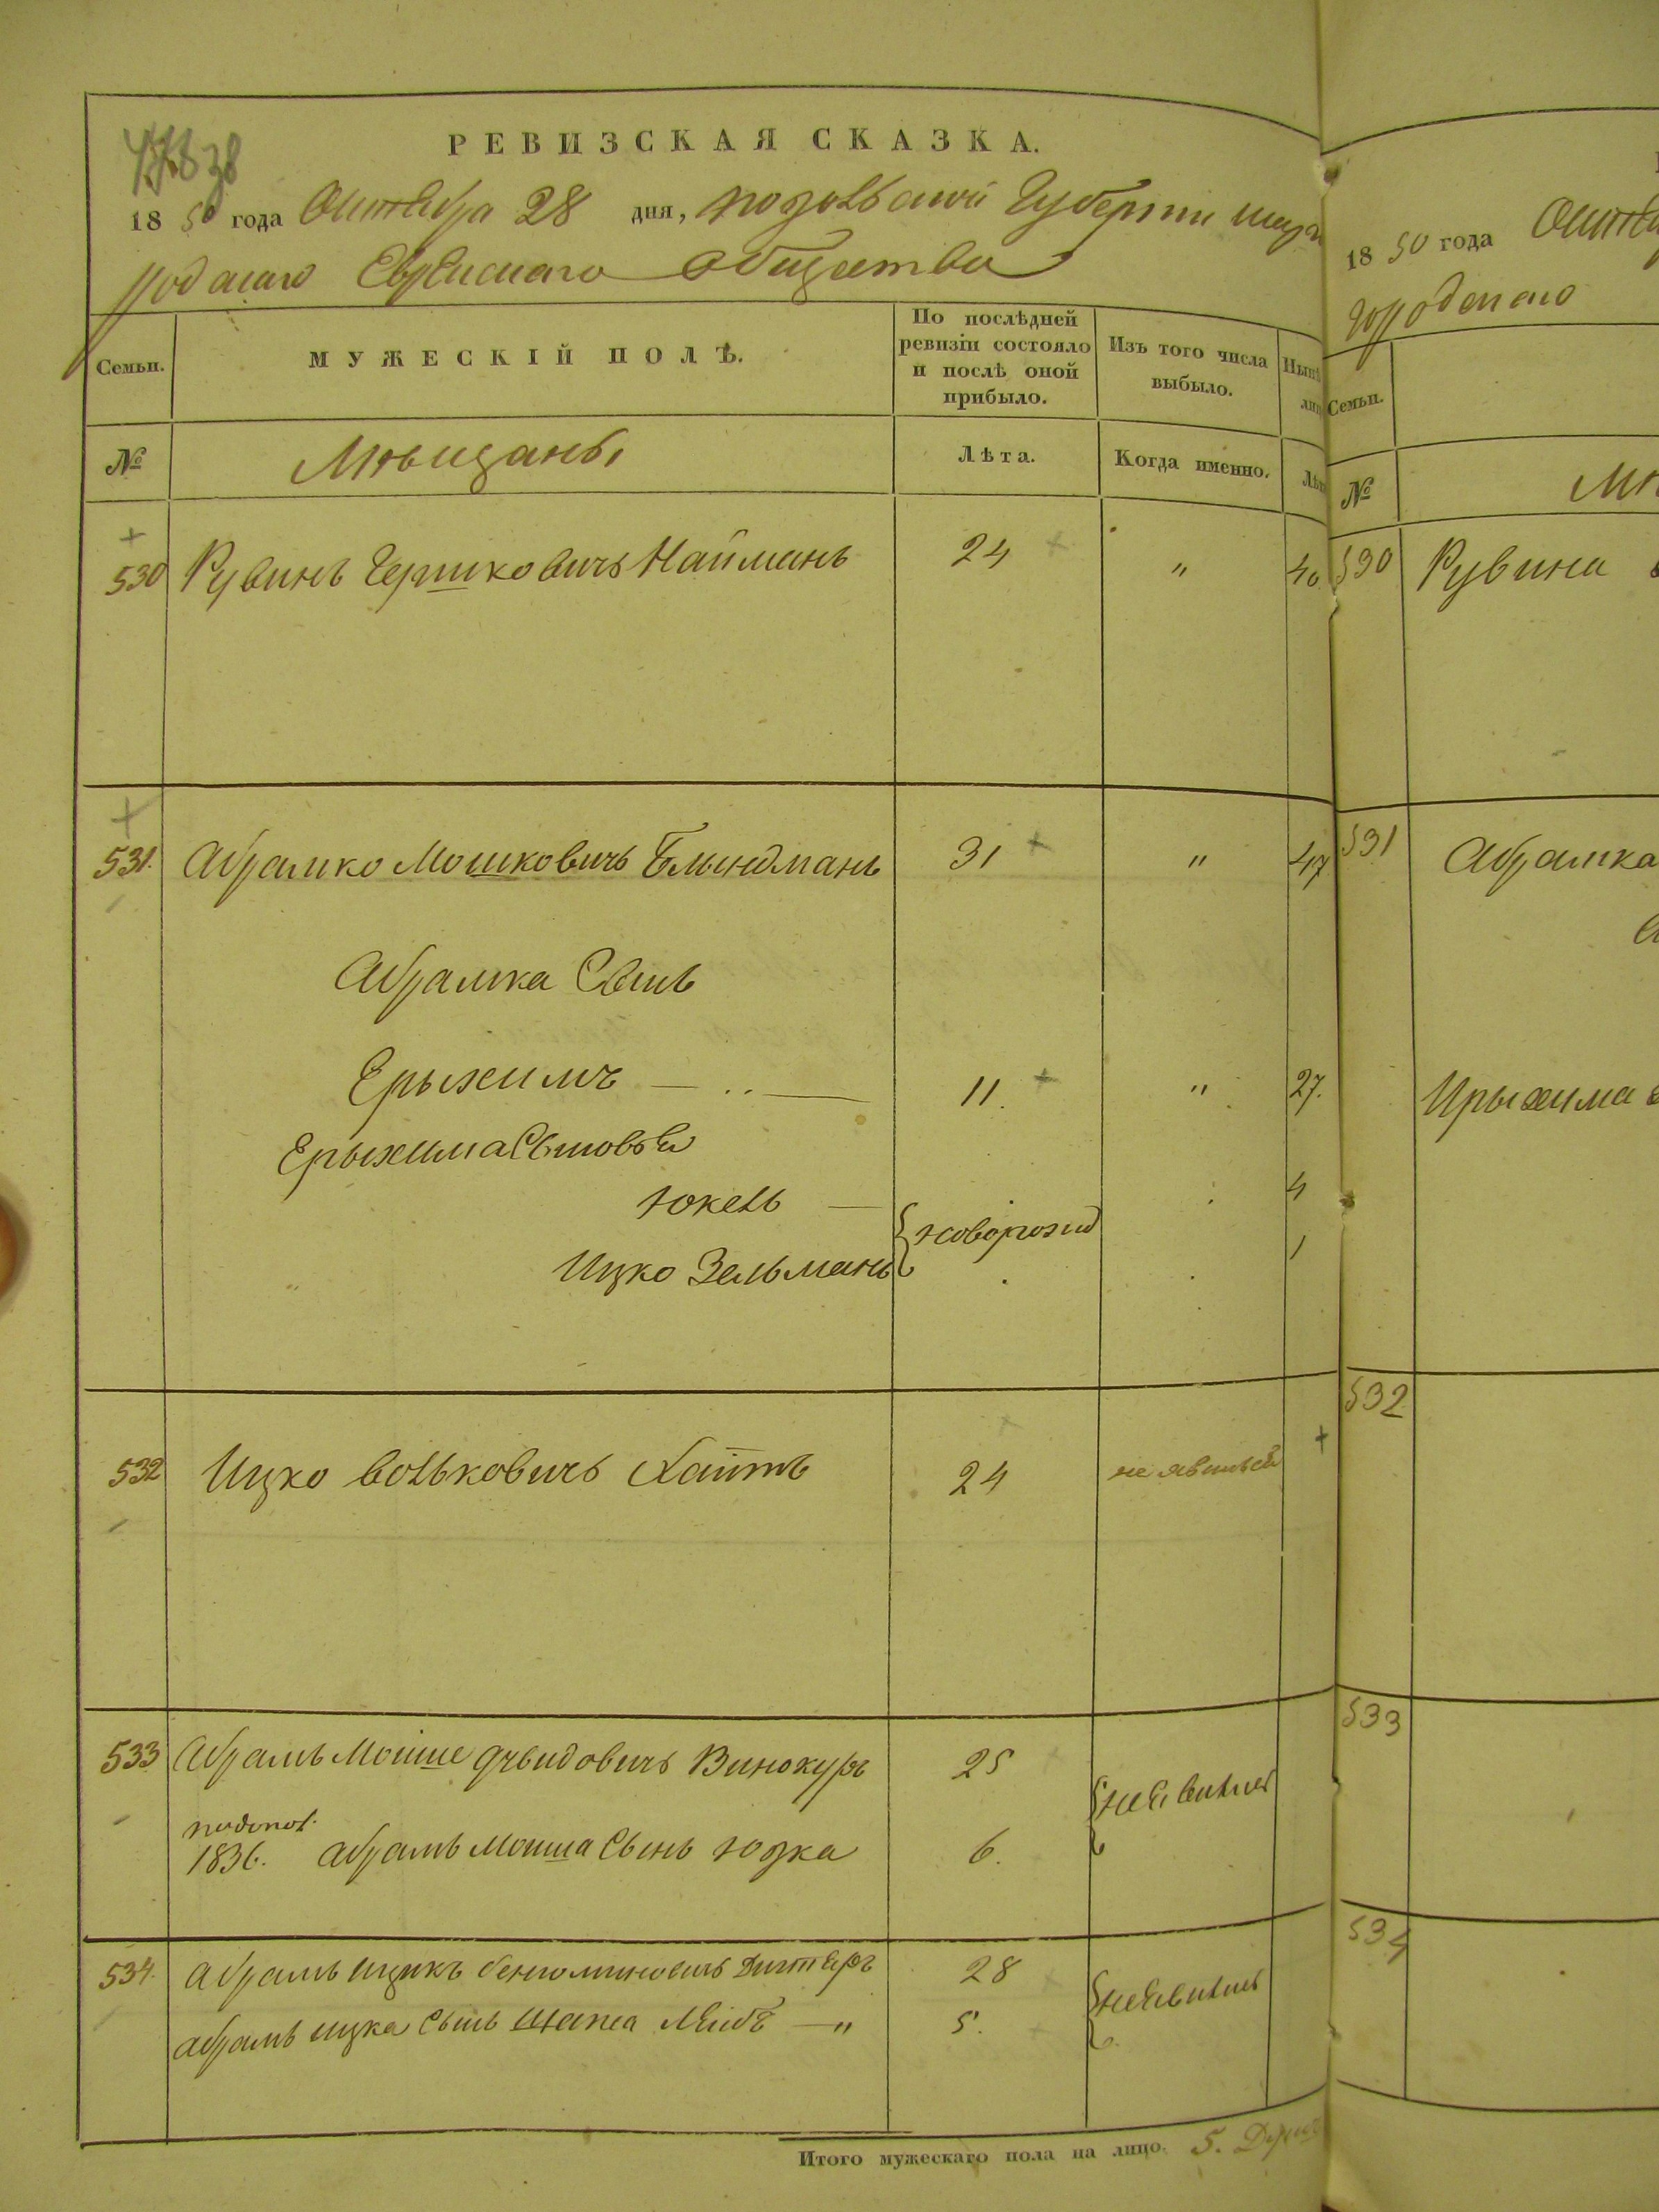 РЕВИЗСКАЯ СКАЗКА.
1850 года Октября 28 дня, Подольской Губернии
Еврейскаго Общества
Семьи.
МУЖЕСКІЙ ПОЛЪ.
По послѣдней ревизіи состояло и послѣ оной прибыло.
Изъ того числа выбыло.
№
Мѣщанѣ
Лѣта.
Когда именно.
530 Рувинъ Гершковичъ Найманъ 24 " 40
531. Абрамко Мошковичъ Блиндманъ 31 " 47
Абрамка Сынъ
Ерыхимъ 11. " 27.
Ерыхима Сыновья
Юкель 4
новорожд
Ицко Зельманъ 1
532 Ицко Вольковичъ 24 не явился
533 Абрамъ Мошше Дувидовичъ Винокуръ 25
неявились
1836. Абрамъ Мошша Сынъ Юдка 6.
534. Абрамъ Ицикъ Бенюминовичъ 28
неявились
Абрамъ Ицка Сынъ Лейбъ — " 5.
Итого мужескаго пола на лицо. 5.
1850 года
Семьи.
№
530 Рувина
531 Абрамка
Ирыхима
532
533
534